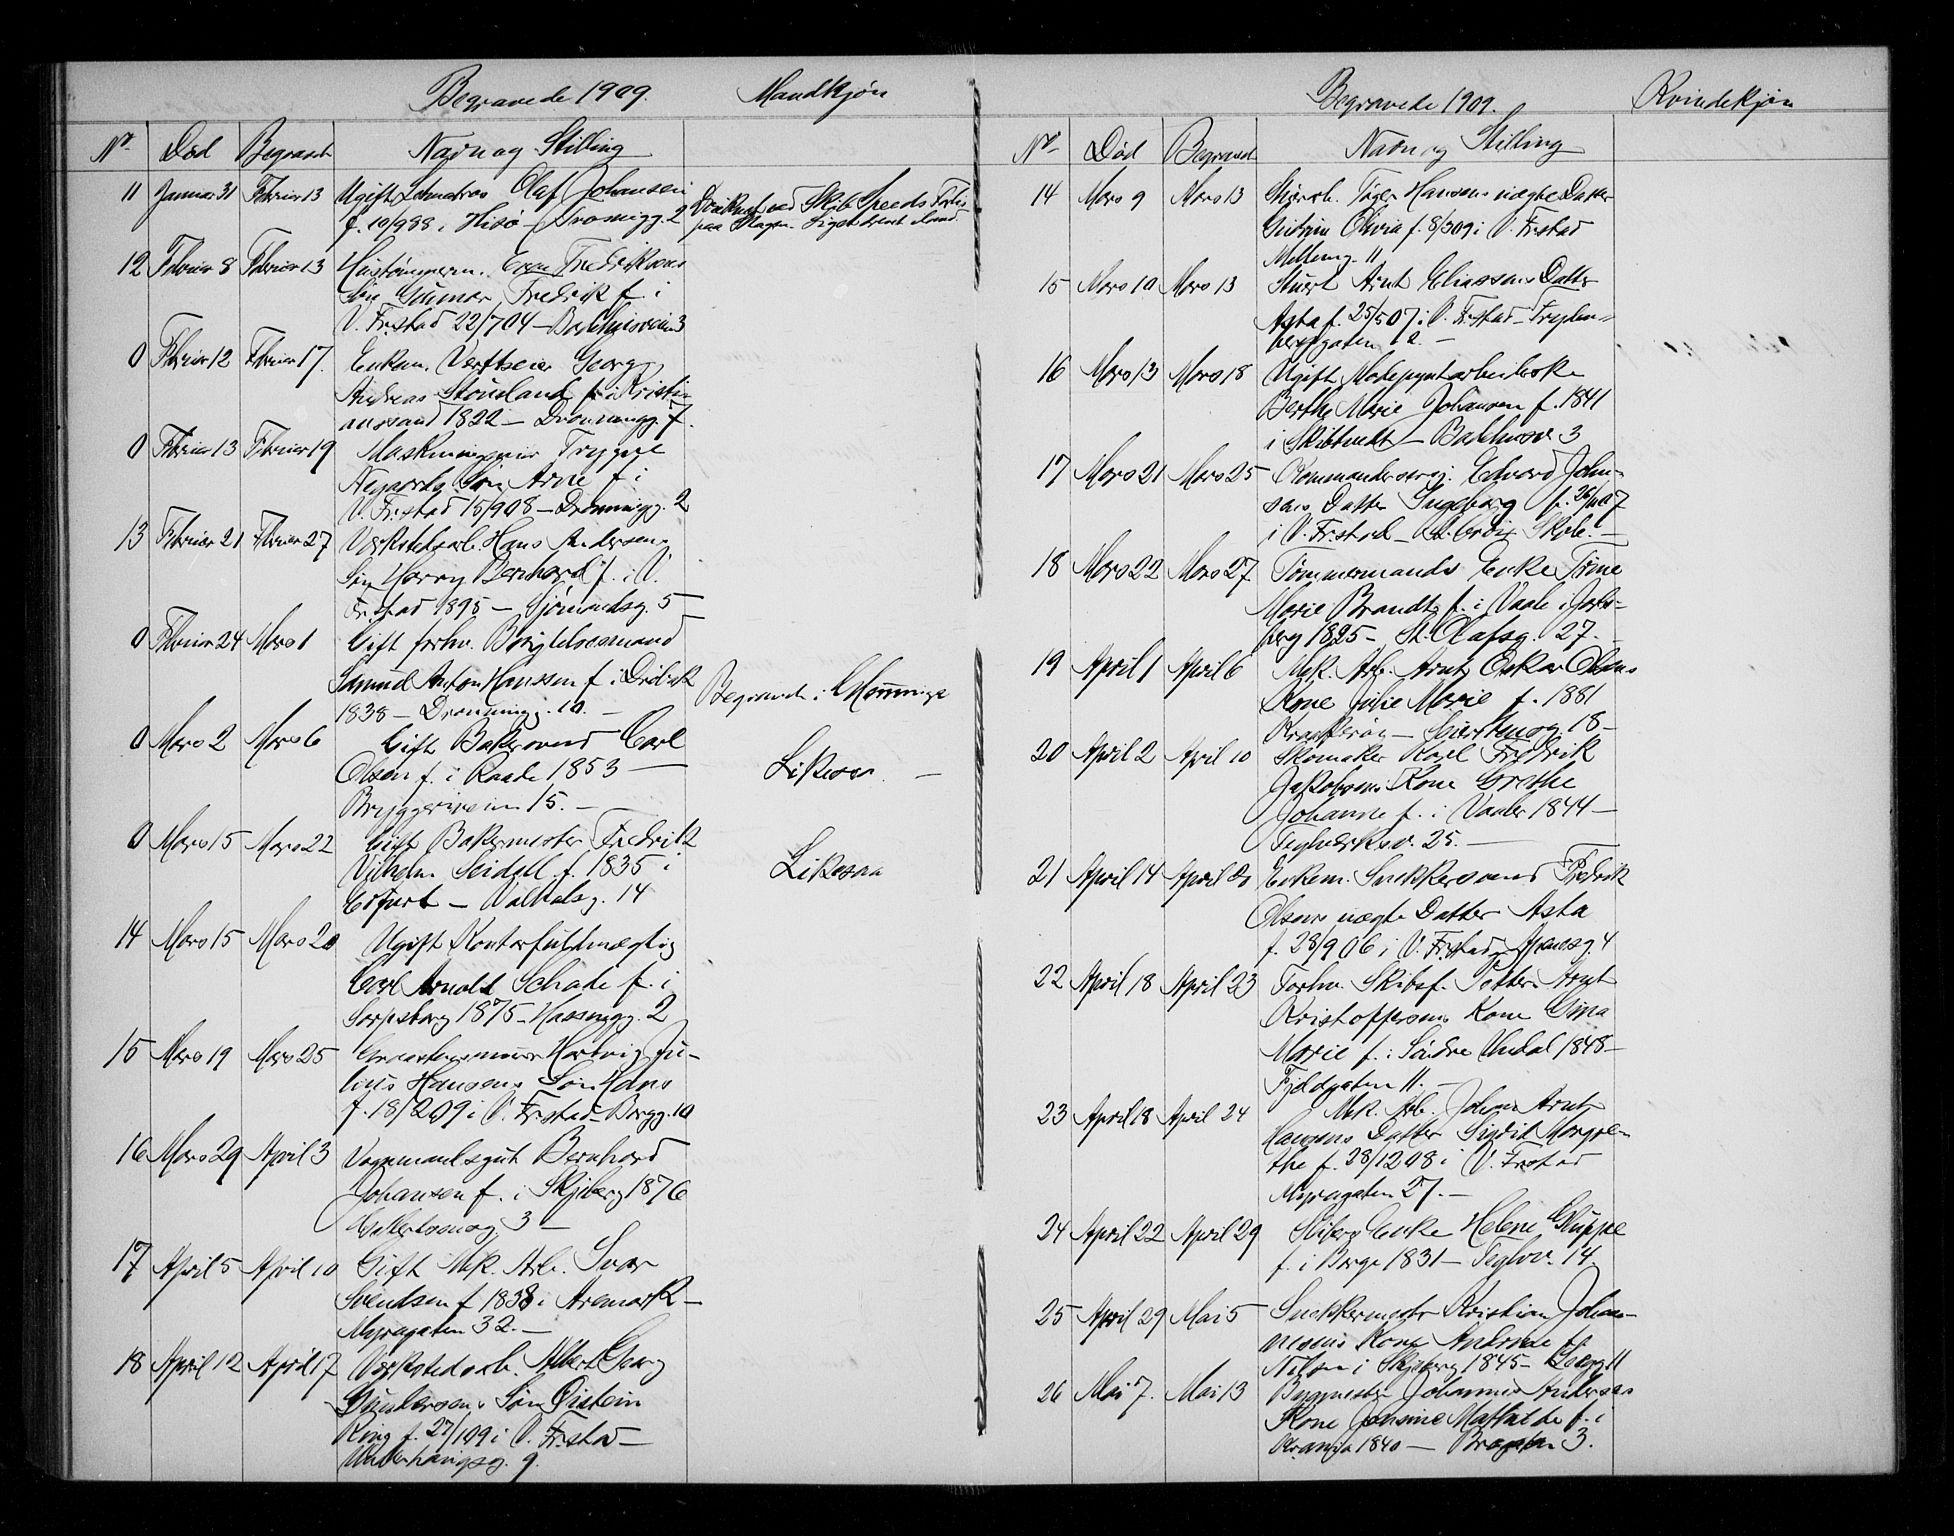 Begravede 1909. Mandkjøn
No Död Begravet Navn og Stilling
11 Januar 31 Februar 13 Ugift Olaf Johansen
f. 10/988 i Hisö - Dronningg. 2
Druknet ved Skib Speeds Forlis
paa Skagen. Liget brent iland.
12 Februar 8 Februar 13 Hustömmerm. Even Fredriksens
Sön Gunnar Fredrik f. i
V. Fr.stad 22/704 - Bakkusveien 3
0 Februar 12 Februar 17. Enkem. Værftseier Georg
Andreas Stousland f. i Kristi-
anssand 1822 - Dronningg. 7.
0 Februar 13 Februar 19 Maskiningeniör Trygve
Negaards Sön Arne f. i
V. Fr.stad 15/908 - Dronningg. 2
13 Februar 21 Februar 27 Værkstedsarb. Hans Andersens
Sön Harry Bernhard f. i V.
Fr.stad 1895 - Sjömandsg. 5 -
0 Februar 24 Mars 1 Gift forhv. Bestyrelsesmand
Samuel Anton Hanssen f. i Dröbak
1838 - Dronningg. 10. -
Begravet i Glemminge
0 Mars 2 Mars 6 Gift Bakersvend Carl
Olsen f. i Raade 1853 -
Bryggeriveien 15. -
Likesaa. -
0 Mars 15 Mars 22 Gift Bakermester Fredrik
Vilhelm Seidell f. 1835 i
Erfurt - Valhalsg. 14
Likesaa
14 Mars 15 Mars 20 Ugift Kontorfuldmægtig
Carl Arnold Schade f. i
Sarpsborg 1875 - Hassingg. 2
15 Mars 19 Mars 25 Hartvig Ju-
lius Hansens Sön Hans
f. 18/209 i V. Fr.stad - Borgg. 10
16 Mars 29 April 3 Vognmandsgut Bernhard
Johansen f. i Skjeberg 1876
3 -
17 April 5 April 10 Gift Mek. Arb. Ivar
Svendsen f. 1838 i Aremark -
Myragaten 32. -
18 April 12 April 17 Værkstedsarb. Albert Georg
Gundersens Sön Öistein
Ring f. 27/109 i V. Fr.stad -
9.
Begravede 1909. Kvindekjön
No Död Begravet Navn og Stilling
14 Mars 9 Mars 13 Hansens uægte Datter
Gudrun Olivia f. 8/309 i V. Fr.stad
11
15 Mars 10 Mars 13 Stuert Arnt Eliassens Datter
Asta f. 25/507 i V. Fr.stad - Trygten-
berggaten 12. -
16 Mars 13 Mars 18 Ugift Modepyntarbeiderske
Berthe Marie Johansen f. 1841
i Skibtvedt - Bakkusv. 3
17 Mars 21 Mars 25 Kommandersersj. Edvard John-
sens Datter Ingeborg f. 26/1107
i V. Fr.stad - Skole. -
18 Mars 22 Mars 27 Tömmermands Enke Trine
Marie Brandt f. i Vaale i Jarls-
berg 1825 - St. Olafsg. 27. -
19 April 1 April 6 Mek. Arb. Arnt Oskar Olsens
Kone Julie Marie f. 1881
Kraakerøy - 18 -
20 April 2 April 10 Skomaker Karl Fredrik
Jakobsens Kone Grethe
Johanne f. i Vaaler 1844 -
Teglverksv. 25. -
21 April 14 April 20 Enkem. Snekkersvend Fredrik
Olsens uægte Datter Asta
f. 28/906 i V. Fr.stad 4
22 April 18 April 23 Forhv. Skibsf. Petter Arnt
Kristoffersens Kone Gina
Marie f. i Söndre Undal 1848 -
Fjeldgaten 11. -
23 April 18 April 24 Mek. Arb. Johan Arnt
Hansens Datter Sigrid Margre-
the f. 28/1208 i V. Fr.stad
Myragaten 27. -
24 April 22 April 29 Enke Helene Gluppe
f. i Borge 1831 - Teglvv. 14.
25 April 29 Mai 5 Snekkermester Kristian Johan-
nesens Kone Andrine f.
Nilsen i Skjeberg 1845 - 11
26 Mai 7. Mai 13 Bygmester Johannes Andersens
Kone Jensine Mathilde f. i
1840 - 3.